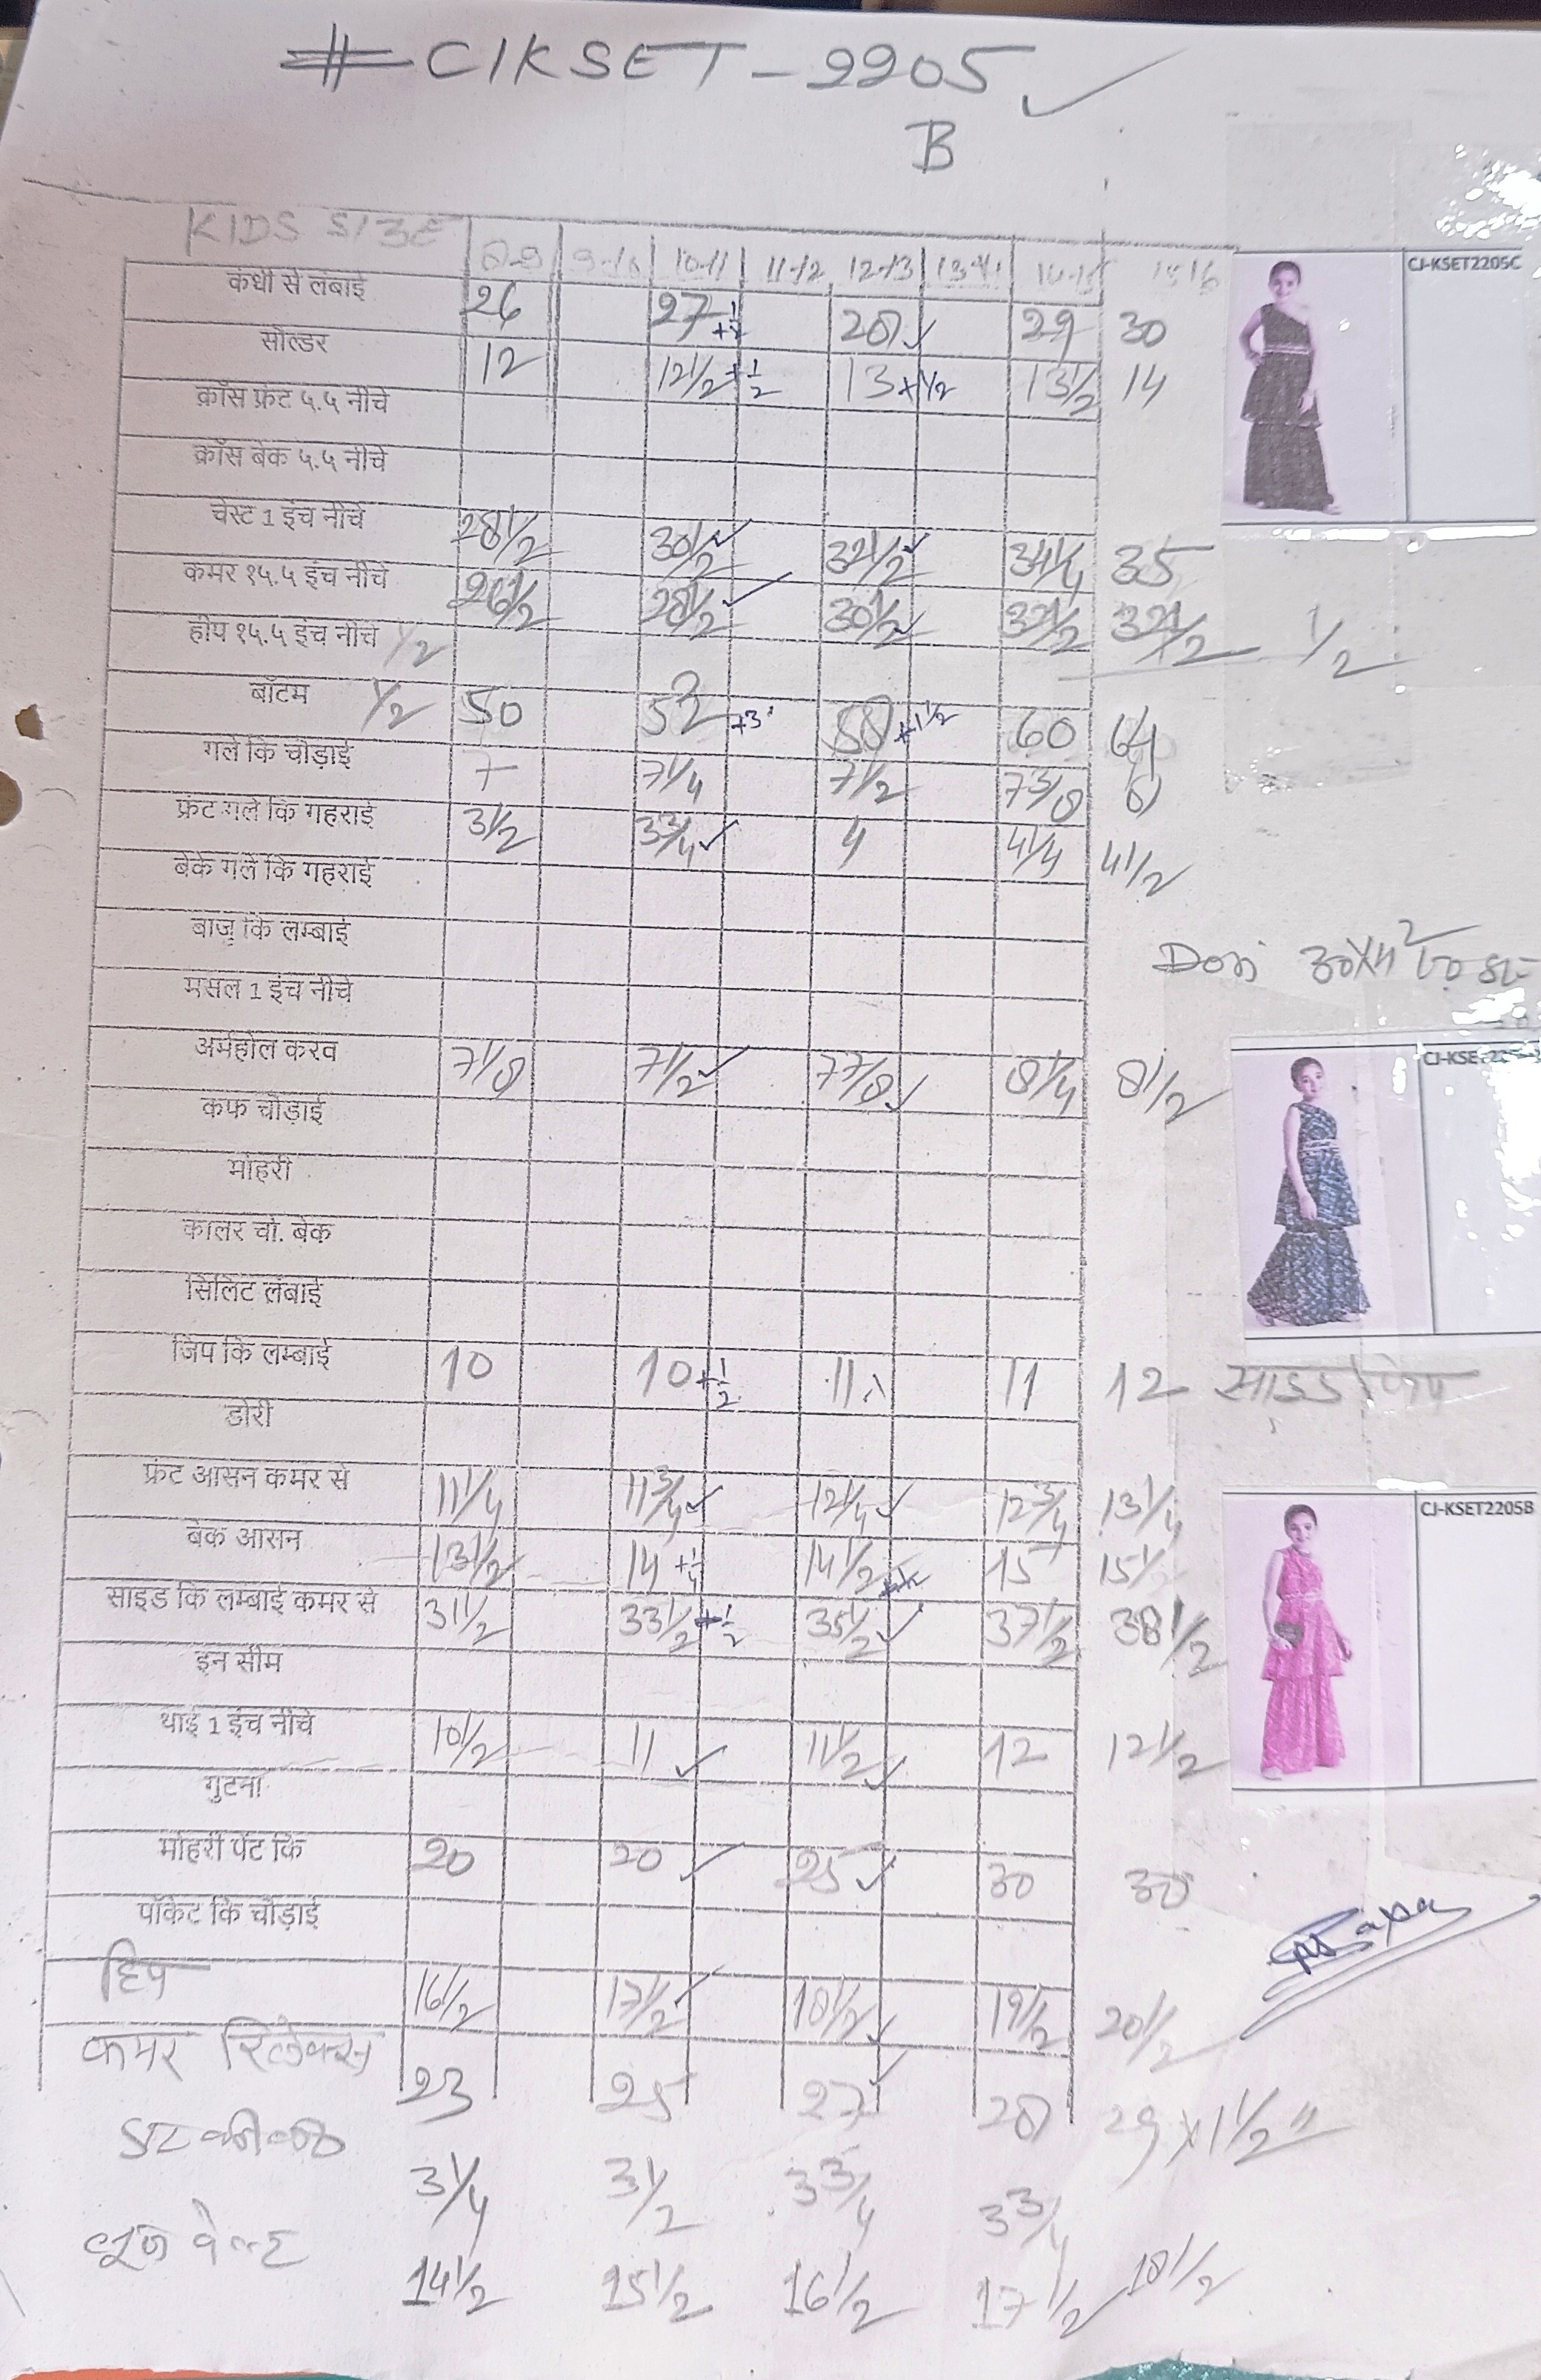 # CIKSET - 2205 ✓
B
KIDS SIZE 8-9 9-10 10-11 11-12 12-13 13-14 14-15 15-16
कंधी से लंबाई 26 27 +1/2 28 ✓ 29 30
सोल्डर 12 12 1/2 +1/2 13 +1/2 13 1/2 14
क्रॉस फ्रंट ५.५ नीचे
क्रॉस बेक ५.५ नीचे
चेस्ट 1 इंच नीचे 28 1/2 30 1/2 ✓ 32 1/2 ✓ 34 1/4 35
कमर १५.५ इंच नीचे 26 1/2 28 1/2 ✓ 30 1/2 ✓ 32 1/2 32 1/2 1/2
हीप १५.५ इंच नीचे 1/2
बॉटम 1/2 50 52 +3" 58 +1 1/2 60 64
गले कि चौड़ाई 7 7 1/4 7 1/2 7 3/8 8
फ्रंट गले कि गहराई 3 1/2 3 3/4 ✓ 4 4 1/4 4 1/2
बेके गले कि गहराई
बाजू कि लम्बाई
Dori 30x
मसल 1 इंच नीचे
अर्महोल करव 7 1/8 7 1/2 ✓ 7 7/8 ✓ 8 1/4 8 1/2
कफ चौड़ाई
मोहरी
कालर चो. बेक
सिलिट लंबाई
जिप कि लम्बाई 10 10 +1/2 11 11 12 साइड जिप
डोरी
फ्रंट आसन कमर से 11 1/4 11 3/4 ✓ 12 1/4 ✓ 12 3/4 13 1/4
बेक आसन 13 1/2 14 +1/4 14 1/2 15 15 1/2
साइड कि लम्बाई कमर से 31 1/2 33 1/2 +1/2 35 1/2 ✓ 37 1/2 38 1/2
इन सीम
थाई 1 इंच नीचे 10 1/2 11 ✓ 11 1/2 ✓ 12 12 1/2
गुटना
मोहरी पेंट कि 20 20 ✓ 25 ✓ 30 30
पॉकेट कि चौड़ाई
हिप 16 1/2 17 1/2 ✓ 18 1/2 ✓ 19 1/2 20 1/2
कमर रिलेक्स 23 25 27 ✓ 28 29 x 1 1/2"
3 1/4 3 1/2 3 3/4 3 3/4
लूज वेल्ट 14 1/2 15 1/2 16 1/2 17 1/2 18 1/2
CJ-KSET2205C
CJ-KSET2205B